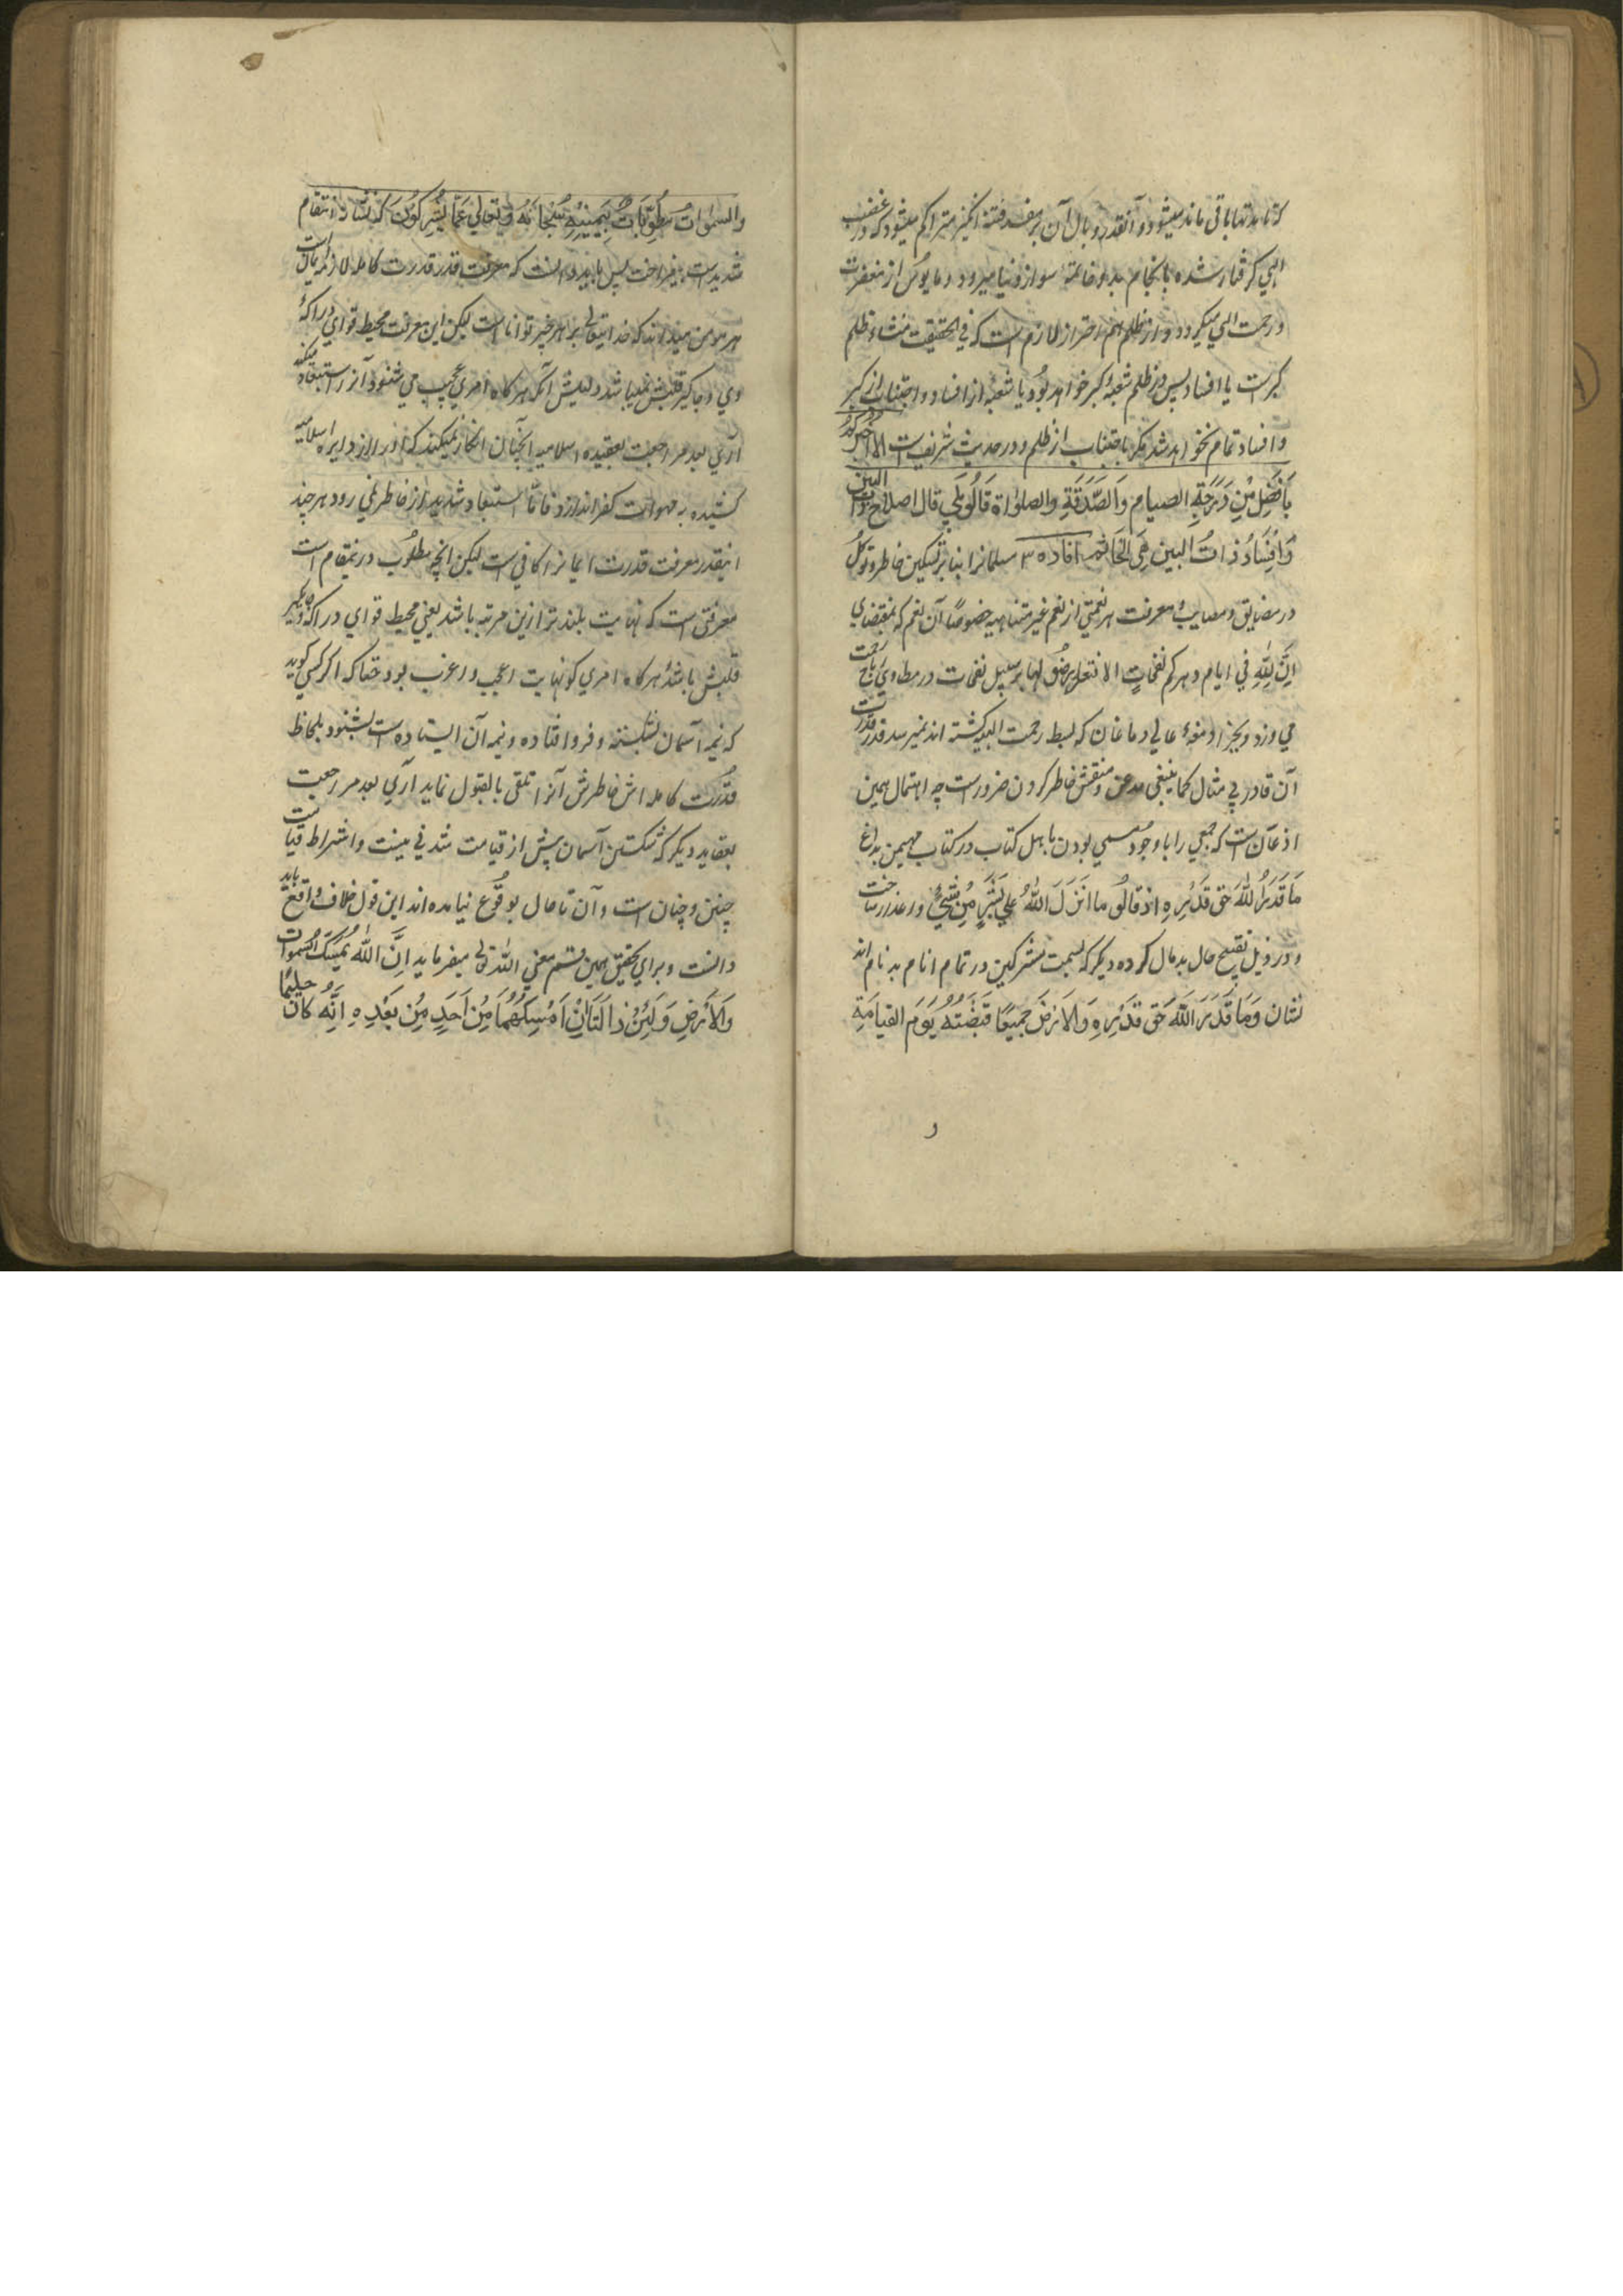 که تا مدتها باقی ماند میشود و آنقدر وبال آن بر مفسد فتنه انگیز متراکم میشود که در غضب
الهی گرفتار شده بانجام بد و خاتمهٔ سو از دنیا میرود و مایوس از مغفرت
و رحمت الهی میگردد و از ظلم هم احتراز لازم است که فی الحقیقت منشاء ظلم
کبرست یا افساد پس در ظلم شعبهٔ کبر خواهد بود یا شعبهٔ از افساد و اجتناب از کبر
و افساد تمام نخواهد شد مگر باجتناب از ظلم و در حدیث شریف است الا اخبرکم
بِاَفضَلِ مِن دَرَجَةِ الصیام وَالصَّدَقَةِ والصلوٰة قَالُو بَلٰی قال اصلاح ذات البین
وَاِفسَادُ ذاتُ البین هِیَ الحَالقه افاده ۳ مسلمانرا بنا بر تسکین خاطر و توکل
در مضایق و مصایب معرفت هر نعمتی از نعم غیر متناهیه خصوصًا آن نعم که بمقتضای
اِنَّ لِلّٰهِ فی ایام دهرکم نفحاتٍ الا فتعرضو لها بر سبیل نفحات در مطاوی ریاح رحمت
می وزد و بجز ادمغهٔ عالی دماغان که بسط رحمت الهیه گشته اند نمیرسد قدر قدرت
آن قادر بی مثال کما ینبغی مذعن و منقش خاطر کردن ضرورست چه اهتمال همین
اذعان است که جمعی را باوجود مسمی بودن باهل کتاب در کتاب مهیمن بداغ
مَا قَدَرُ اللّٰهَ حَق قَدرِهِ اذ قالُو ما انزَلَ اللّٰهُ عَلٰی بَشَرٍ مِن شَیٍٔ داغدار ساخت
و در ذیل تقبیح حال بدمال کرده دیگر که بسمت مشرکین در تمام انام بدنام اند
نشان وَمَا قَدَرَ اللّٰهَ حَق قَدرِهِ وَالاَرضَ جَمیعًا قَبضَتُهُ یَومَ القیامَةِ
والسمٰوات مَطوِیّاتٌ بِیَمِینِهِ سُبحَانَهُ وَتعالٰی عَمَّا یُشرِکُونَ که نشان انتقام
شدیدست بیفراخت پس باید دانست که معرفت قدر قدرت کامله لازمهٔ ایمان است
هر مومن میداند که خدایتعالی بر هر چیز تواناست لیکن این معرفت محیط قوای دراکهٔ
وی و جاگیر قلبش نمیباشد دلیلش آنکه هرگاه امری عجیب می شنود آنرا استبعاد میکند
آری بعد مراجعت بعقیده اسلامیه آنچنان انکار نمیکند که او را از دایره اسلامیه
کشیده به مهوات کفر اندازد فاما استبعاد شدید از خاطر نمی رود هر چند
اینقدر معرفت قدرت ایمانرا کافی است لیکن انچه مطلوب درینمقام است
معرفتی است که نهایت بلندتر ازین مرتبه باشد یعنی محیط قوای دراکه و جایگیر
قلبش باشد هرگاه امری کو نهایت اعجب و اغرب بود حقا که اگر کسی گوید
که نیمه آسمان شکسته و فرو افتاده و نیمه آن ایستاده است بشنود بلحاظ
قُدرت کامله اش خاطرش آنرا تلقی بالقبول نماید آری بعد مراجعت
بعقاید دیگر که شکستن آسمان پیش از قیامت شدنی نیست و اشراط قیامت
چنین و چنان است و آن تا حال بوقوع نیامده اند این قول خلاف واقع باید
دانست و برای تحقیق همین قسم معنی اللّٰه تعالی میفرماید اِنَّ اللّٰهَ یُمسِکُ السمٰوات
وَالاَرضِ وَلَئِن زَالَتَا اِن اَمسَکَهُمَا مِن اَحَدٍ مِن بَعدِهِ اِنَّه کَانَ حلیمًا